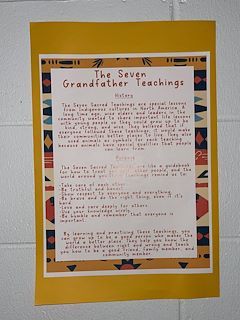 The Seven
Grandfather Teachings
History
The Seven Sacred Teachings are special lessons
from Indigenous cultures in North America. A
long time ago, wise elders and leaders in the
community wanted to share important life lessons
with young people so they could grow up to be
kind, strong, and wise. They believed that if
everyone followed these teachings, it would make
their communities better places to live. They also
used animals as symbols for each teaching
because animals have special qualities that people
can learn from.
Purpose
The Seven Sacred Teachings are like a guidebook
for how to treat yourself, other people, and the
world around you. The teachings remind us to:
-Take care of each other
-Be truthful and honest
-Show respect to everyone and everything.
-Be brave and do the right thing, even if it's
hard.
-Love and care deeply for others
-Use your knowledge wisely
-Be humble and remember that everyone is
important.
By learning and practicing these teachings, you
can grow up to be a good person who makes the
world a better place. They help you know the
difference between right and wrong and teach
you how to be a good friend, family member, and
community member.